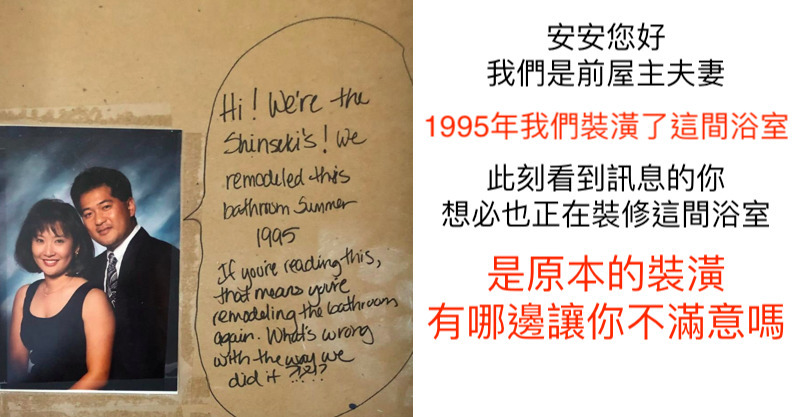 Hi! We're the
Shinseki's! We
remodeled this
bathroom Summer
1995
If you're reading this,
that means you're
remodeling the bathroom
again. What's wrong
with the way we
did it ?!?!?
安安您好
我們是前屋主夫妻
1995年我們裝潢了這間浴室
此刻看到訊息的你
想必也正在裝修這間浴室
是原本的裝潢
有哪邊讓你不滿意嗎